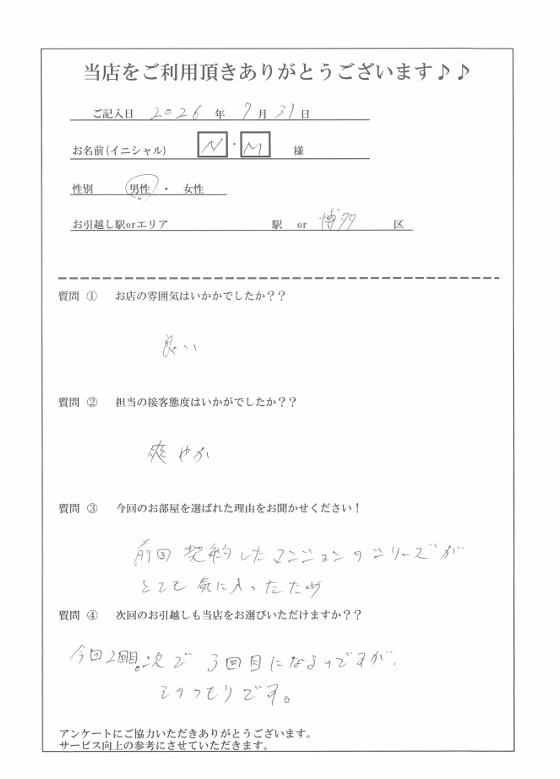 当店をご利用頂きありがとうございます♪♪
ご記入日 2026 年 7 月 31 日
お名前(イニシャル) N・M 様
性別 男性 ・ 女性
お引越し駅orエリア 駅 or 博多 区
質問 ① お店の雰囲気はいかかでしたか??
良い
質問 ② 担当の接客態度はいかがでしたか??
爽やか
質問 ③ 今回のお部屋を選ばれた理由をお聞かせください!
前回契約したマンションのシリーズが
とても気に入ったため
質問 ④ 次回のお引越しも当店をお選びいただけますか??
今回2回目。次で3回目になるのですが、
そのつもりです。
アンケートにご協力いただきありがとうございます。
サービス向上の参考にさせていただきます。